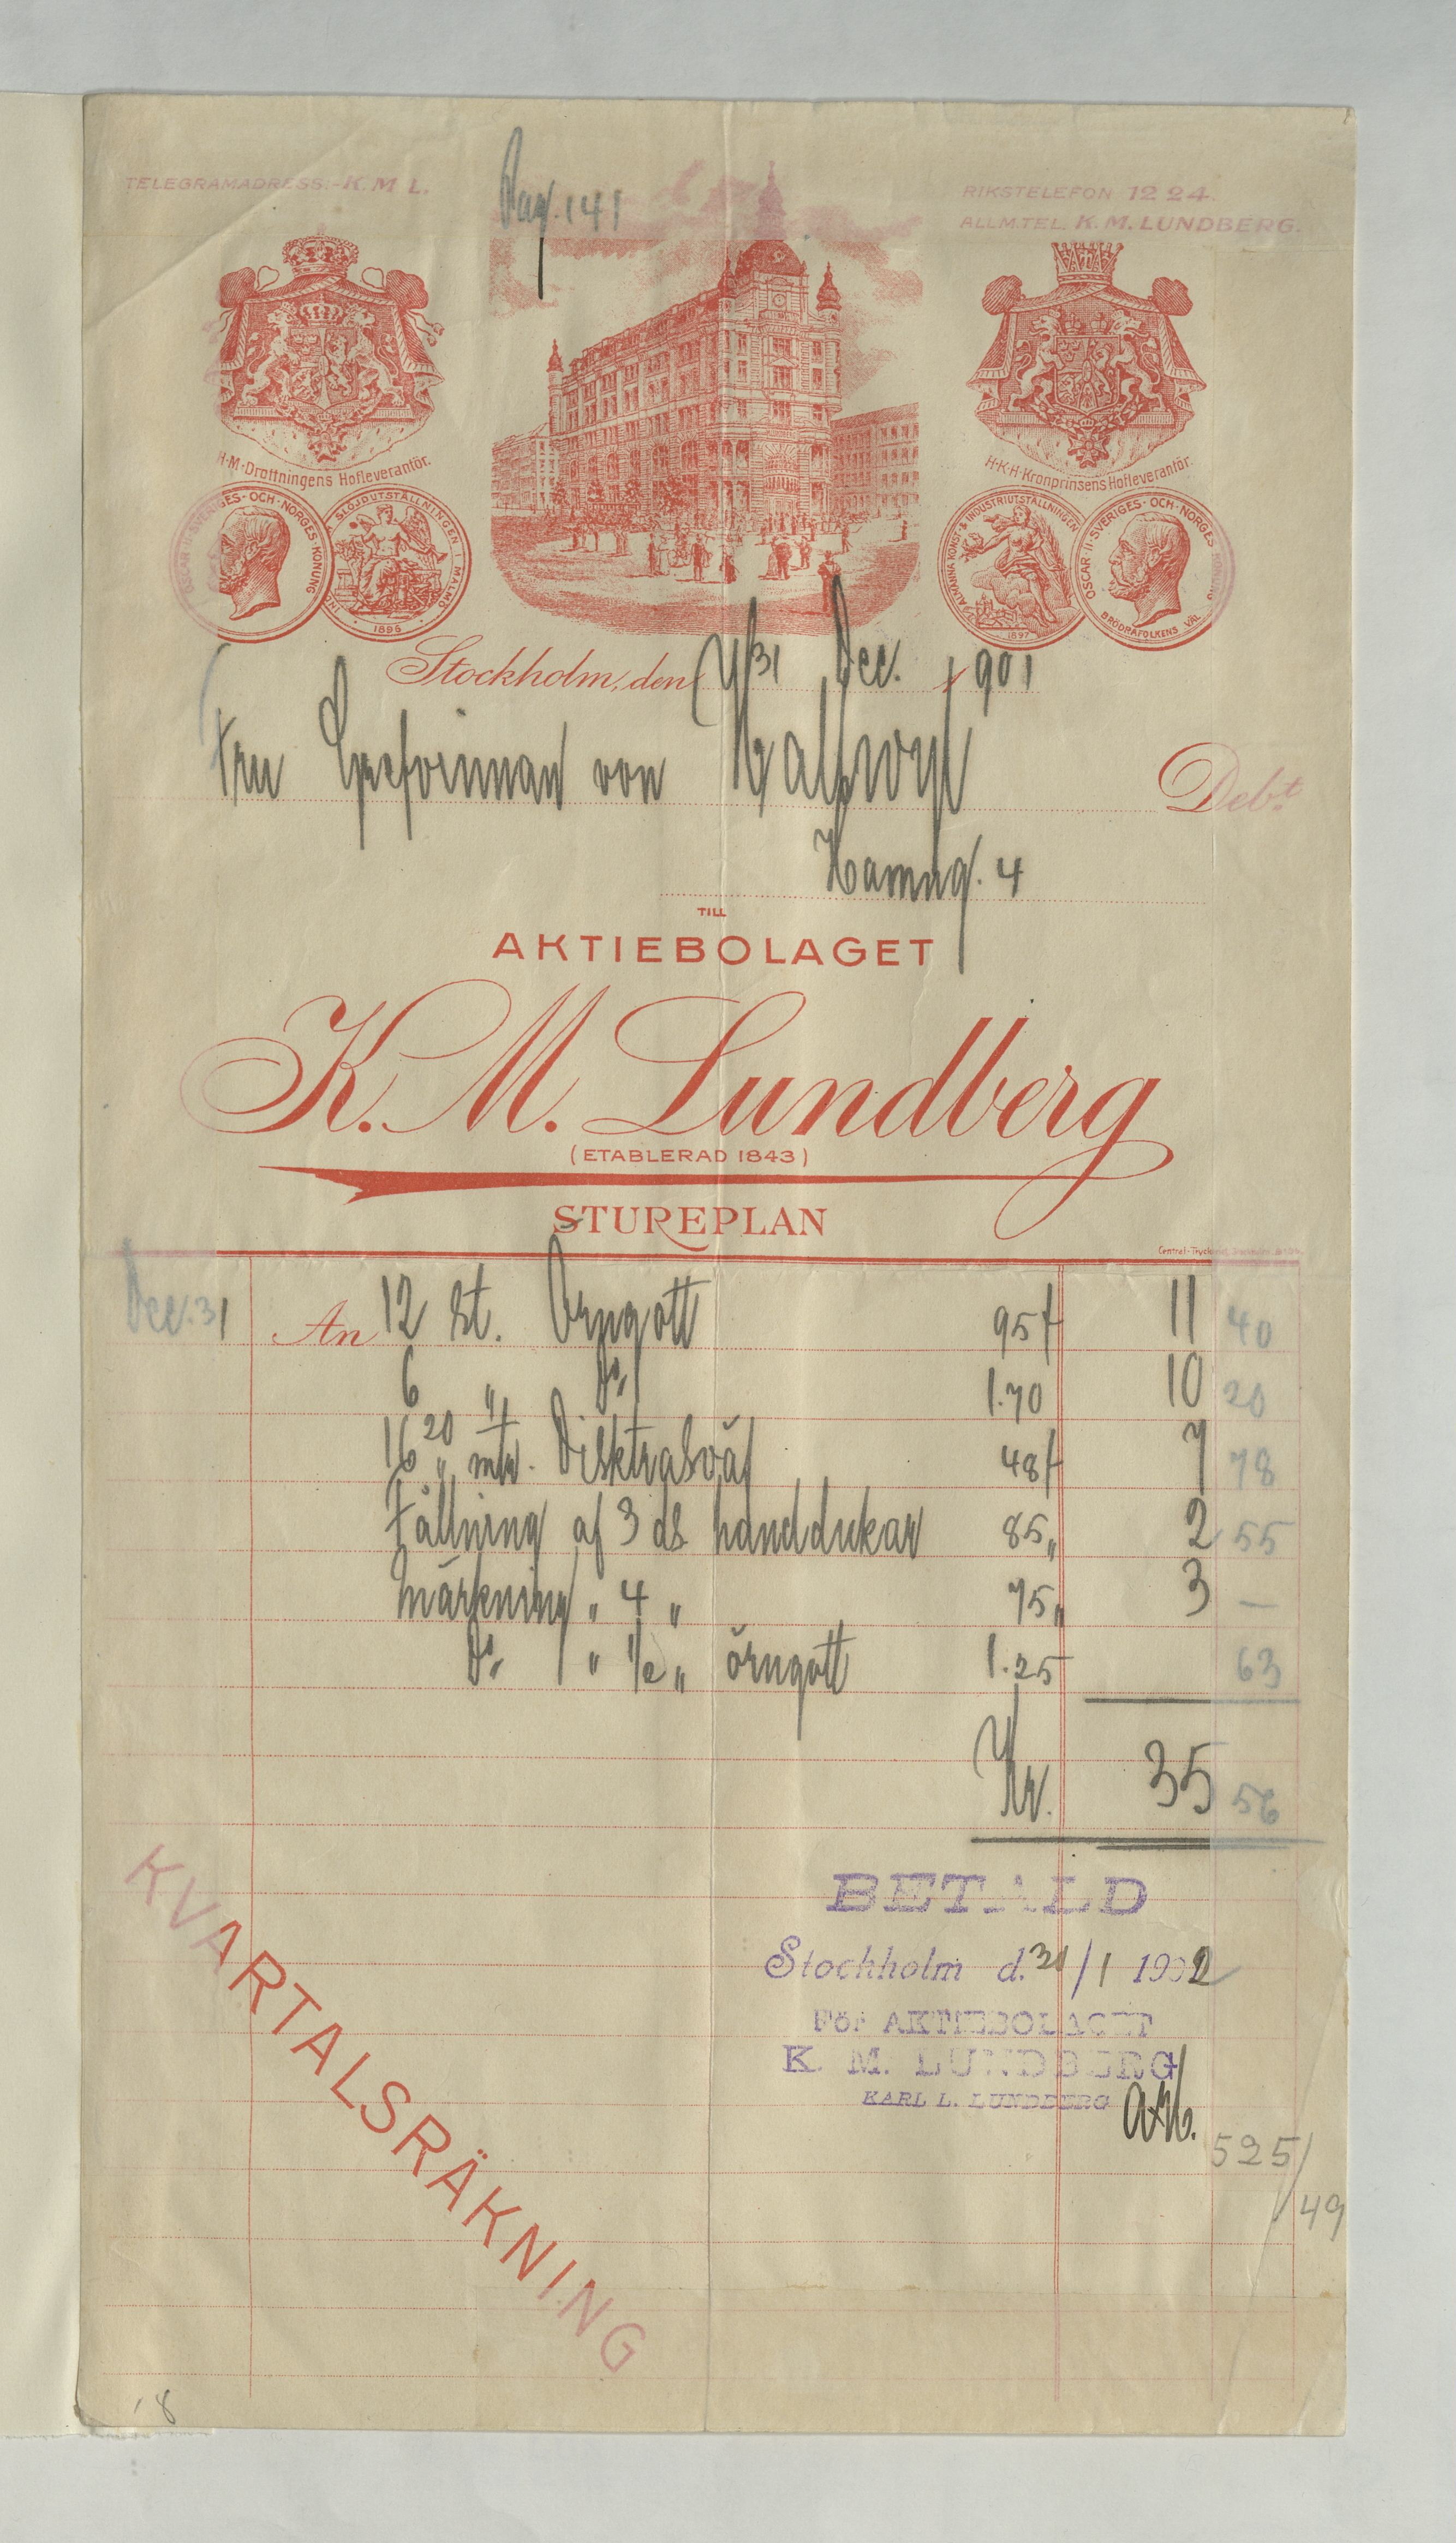 TELEGRAMADRESS:-K. M L.
Pag. 141
RIKSTELEFON 12 24.
ALLM.TEL. K. M. LUNDBERG.
H·M·Drottningens Hofleverantör.
H·K·H·Kronprinsens Hofleverantör.
OSCAR·II·SVERIGES·OCH·NORGES·KONUNG
SLÖJDUTSTÄLLNINGEN I MALMÖ
1896
ALLMÄNNA KONST- & INDUSTRIUTSTÄLLNINGEN
1897
OSCAR·II·SVERIGES·OCH·NORGES KONUNG
BRÖDRAFOLKENS VÄL
Stockholm, den 31 Dec. 1901
Fru Grefvinnan von Hallwyl Debt.
Hamng. 4
TILL
AKTIEBOLAGET
K. M. Lundberg
(ETABLERAD 1843)
STUREPLAN
Dec. 31 An 12 st. Örngott 95 11 40
6 " Do 1.70 10 20
16 20 " mtr. Disktrasväf 48 7 78
Fållning af 3 ds handdukar 85 " 2 55
Märkning " 4 " 75 " 3 —
Do " 1/2 " örngott 1.25 63
Kr. 35 56
BETALD
Stockholm d. 31/1 1902
För AKTIEBOLAGET
K. M. LUNDBERG
KARL L. LUNDBERG
KVARTALSRÄKNING
525/49
18